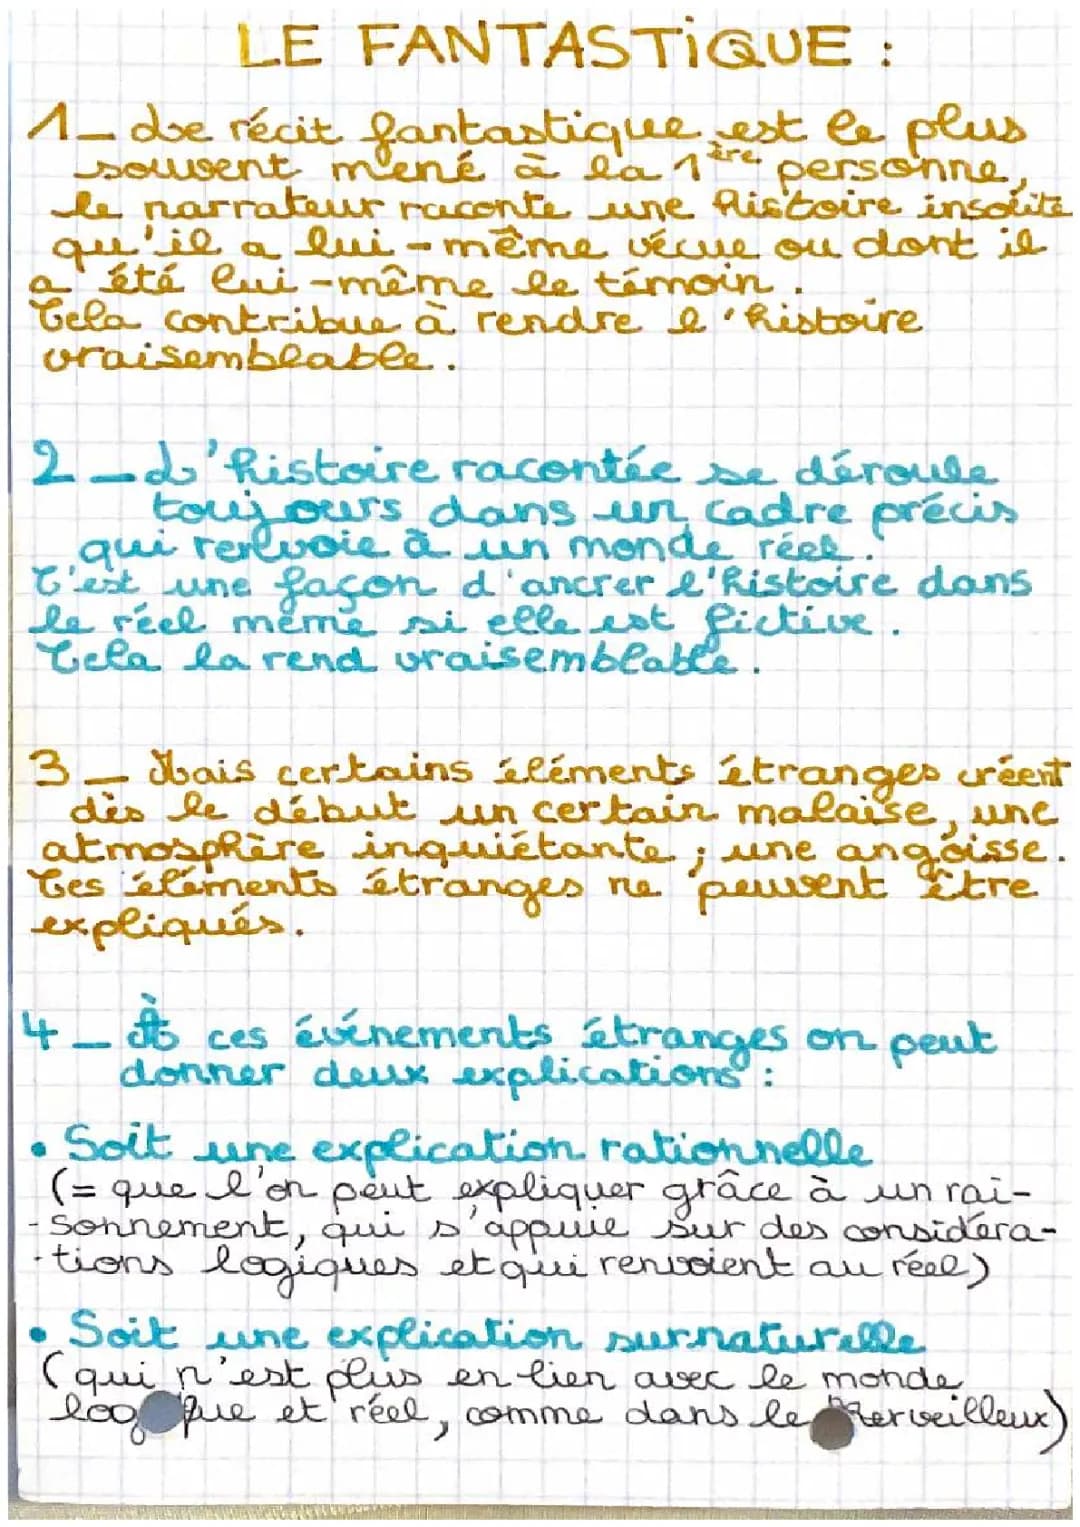 LE FANTASTIQUE :
1_ Le récit fantastique est le plus
souvent mené à la 1ère personne,
le narrateur raconte une histoire insolite
qu'il a lui-même vécue ou dont il
a été lui-même le témoin.
Cela contribue à rendre l'histoire
vraisemblable.
2_ L'histoire racontée se déroule
toujours dans un cadre précis
qui renvoie à un monde réel.
C'est une façon d'ancrer l'histoire dans
le réel même si elle est fictive.
Cela la rend vraisemblable.
3_ Mais certains éléments étranges créent
dès le début un certain malaise, une
atmosphère inquiétante ; une angoisse.
Ces éléments étranges ne peuvent être
expliqués.
4_ À ces événements étranges on peut
donner deux explications :
• Soit une explication rationnelle
(= que l'on peut expliquer grâce à un rai-
-sonnement, qui s'appuie sur des considéra-
-tions logiques et qui renvoient au réel)
• Soit une explication surnaturelle
(qui n'est plus en lien avec le monde
logique et réel, comme dans le Merveilleux)